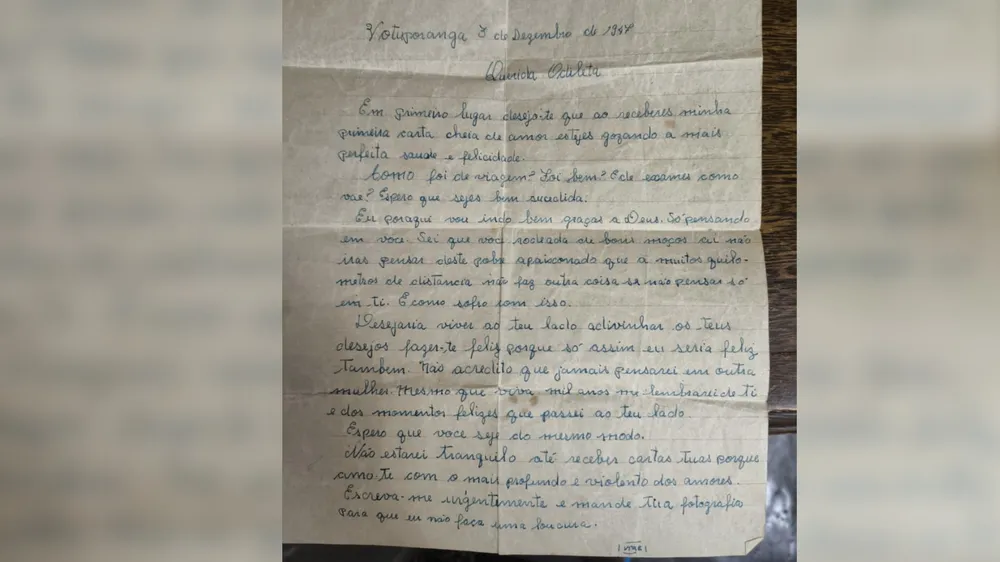 Votuporanga 3 de Dezembro de 1957
Querida Odeleta
Em primeiro lugar desejo-te que ao receberes minha
primeira carta cheia de amor estejes gozando a mais
perfeita saude e felicidade.
Como foi de viagem? Foi bem? E de exames como
vae? Espero que sejes bem sucedida.
Eu poraqui vou indo bem graças a Deus. Só pensando
em você. Sei que você rodeada de bons moços ai não
iras pensar deste pobre apaixonado que á muitos quilo-
metros de distancia não faz outra coisa se não pensar só
em ti. E como sofro com isso.
Desejaria viver ao teu lado adivinhar os teus
desejos fazer-te feliz porque só assim eu seria feliz
Tambem. Não acredito que jamais pensarei em outra
mulher. Mesmo que viva mil anos me lembrarei de ti
e dos momentos felizes que passei ao teu lado.
Espero que voce seje do mesmo modo.
Não estarei tranquilo até receber cartas tuas porque
amo-te com o mais profundo e violento dos amores.
Escreva-me urgentemente e mande tua fotografia
para que eu não faça uma loucura.